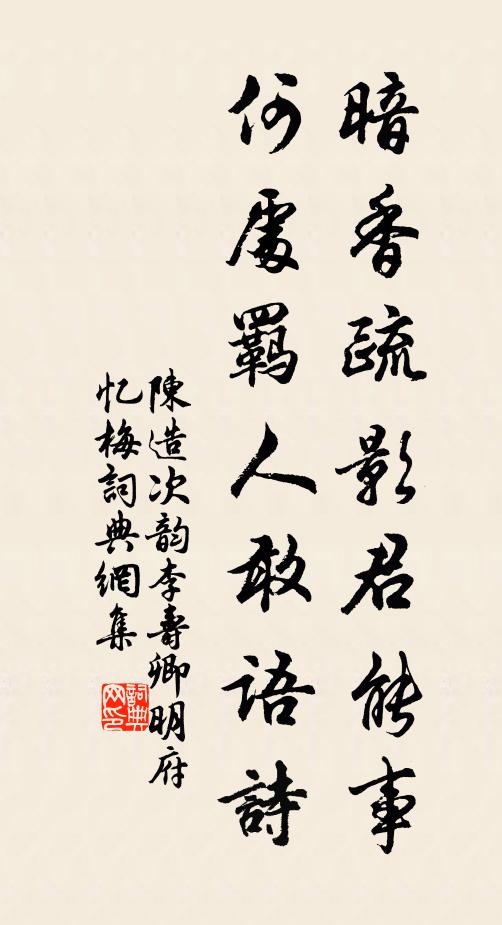 暗香疏影君能事
何處羈人敢語詩
陳造次韵李壽卿明府
忆梅詞典網集
詞典網印